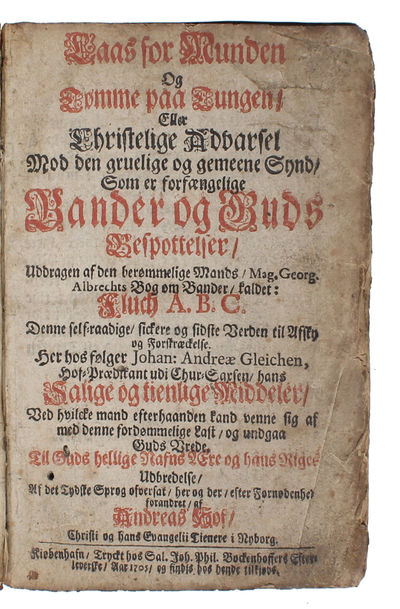 Laas for Munden
Og
Tømme paa Tungen/
Eller
Christelige Advarsel
Mod den gruelige og gemeene Synd/
Som er forfængelige
Bander og Guds
Bespottelser/
Uddragen af den berømmelige Mands/ Mag. Georg.
Albrechts Bog om Bander/ kaldet:
Fluch A. B. C.
Denne selfraadige/ sickere og sidste Verden til Afsky
og Forskræckelse.
Her hos følger Johan: Andreæ Gleichen,
Hof-Prædikant udi Chur-Saxsen/ hans
Salige og tienlige Middeler/
Ved hvilcke mand efterhaanden kand venne sig af
med denne fordømmelige Last/ og undgaa
Guds Vrede.
Til Guds hellige Nafns Ære og hans Riges
Udbredelse/
Af det Tydske Sprog ofversat/ her og der/ efter Fornødenhed
forandret/ af
Andreas Hof/
Christi og hans Evangelii Tienere i Nyborg.
Kiøbenhafn/ Tryckt hos Sal. Joh. Phil. Bockenhoffers Efter-
leverske/ Aar 1705/ og findis hos hende tilkiøbs.